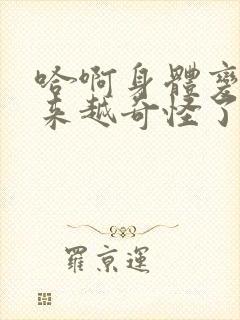 哈啊身體變
来越奇怪了
羅京運